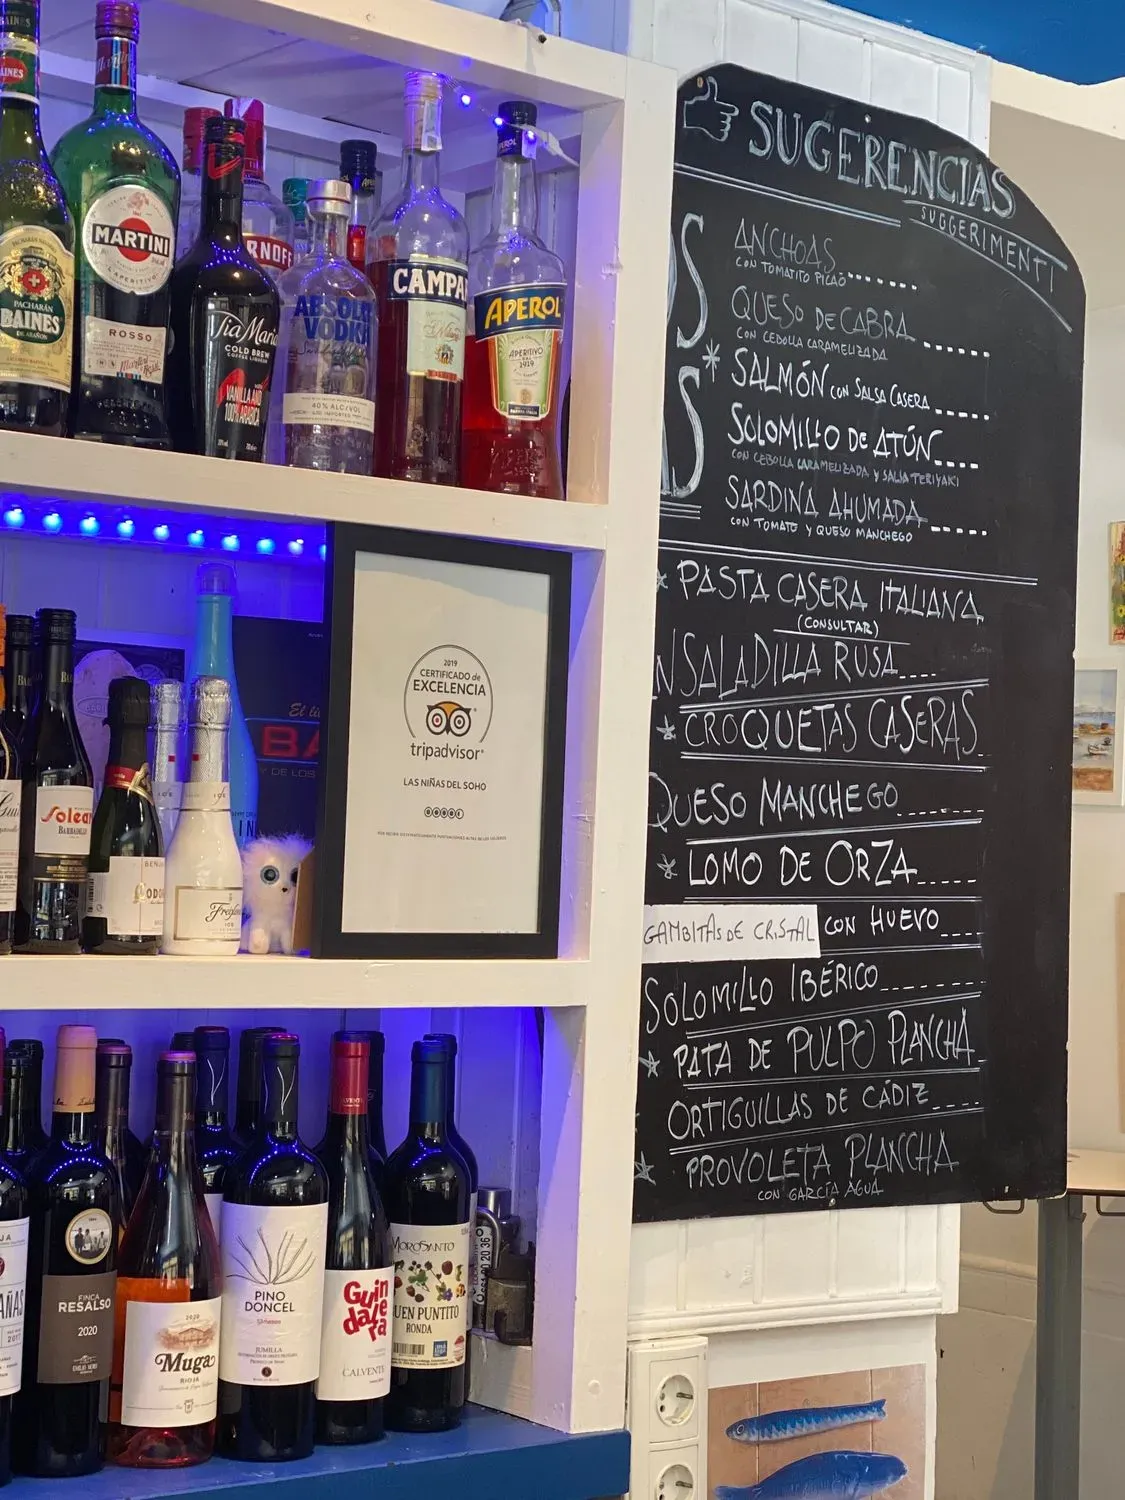 BAINES
PACHARÁN
BAINES
MARTINI
L'APERITIVO
ROSSO
Tia Maria
COLD BREW
COFFEE LIQUEUR
RNOFF
ABSOLUT
VODKA
40% ALC/VOL
CAMPA
APEROL
APERITIVO
1919
Solear
BARBADILLO
BENJA
ICE
Freixe
ICE
El li
BA
Y DE LOS
2019
CERTIFICADO de
EXCELENCIA
tripadvisor
LAS NIÑAS DEL SOHO
FINCA
RESALSO
2020
EMILIO MORO
2020
Muga
RIOJA
PINO
DONCEL
JUMILLA
Guin
dale
ra
CALVENTE
MOROSANTO
BUEN PUNTITO
RONDA
SUGERENCIAS
SUGGERIMENTI
ANCHOAS
CON TOMATITO PICAO
QUESO DE CABRA
CON CEBOLLA CARAMELIZADA
* SALMÓN CON SALSA CASERA
SOLOMILLO DE ATÚN
CON CEBOLLA CARAMELIZADA Y SALSA TERIYAKI
SARDINA AHUMADA
CON TOMATE Y QUESO MANCHEGO
* PASTA CASERA ITALIANA
(CONSULTAR)
NSALADILLA RUSA
* CROQUETAS CASERAS
QUESO MANCHEGO
* LOMO DE ORZA
GAMBITAS DE CRISTAL CON HUEVO
SOLOMILLO IBÉRICO
* PATA DE PULPO PLANCHA
ORTIGUILLAS DE CÁDIZ
* PROVOLETA PLANCHA
CON GARCÍA AGUA